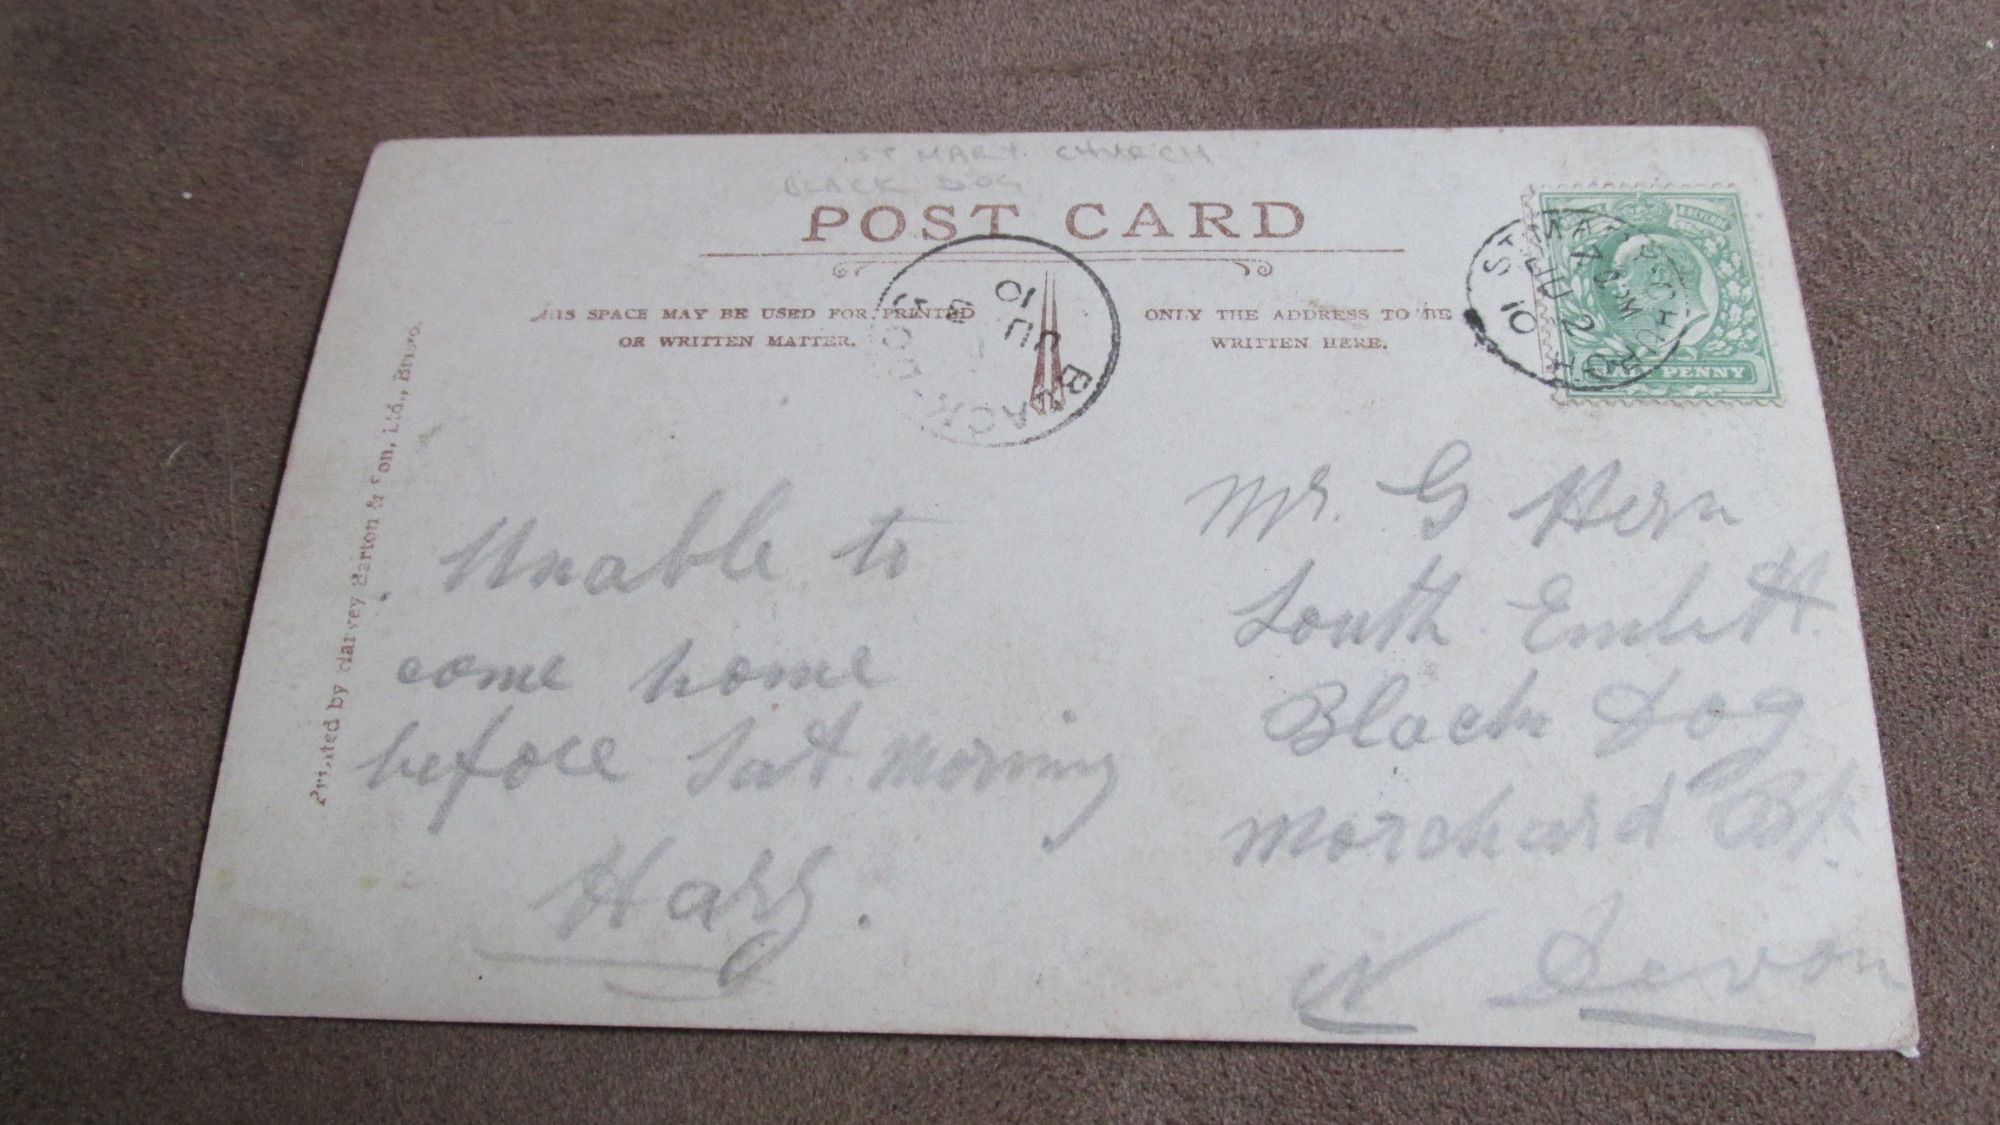 ST MARY CHURCH
BLACK DOG
POST CARD
THIS SPACE MAY BE USED FOR PRINTED
OR WRITTEN MATTER.
ONLY THE ADDRESS TO BE
WRITTEN HERE.
HALF PENNY
BLACK-DOG
JU
10
ST MARYCHURCH
JU 2
10
Printed by Harvey Barton & Son, Ltd., Bristol.
Unable to
come home
before Sat. morning
Harry.
Mr. G Hern
South Emlett
Black Dog
Morchard Bp.
N Devon